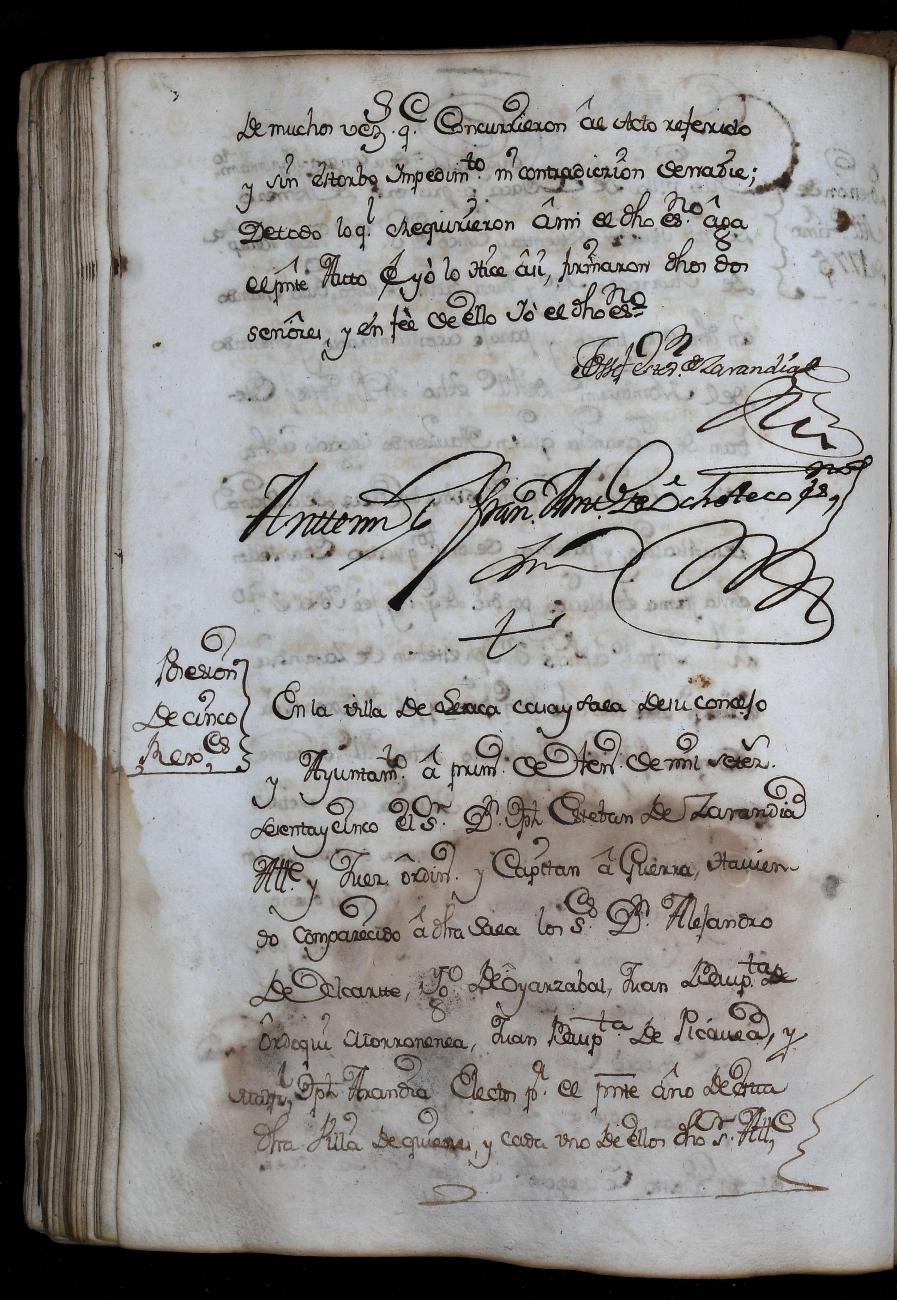 De muchos vez.s q.e Concurrieron âl Acto referido
y sin estorbo Impedim.to ni contradicion de nadie;
De todo lo q.l Requirieron â mi el dho es.no âga
el pnte Autto È yò lo Hice âsi, firmaron dhos dos
señores, y én feè de ello Yò el dho es.no
Josef de Zarandia
Anttemi Fran.co Ant.o de Ôchoteco es.no
Posesion
De cinco
Rex.es
En la villa De Lesaca casa y Saea De su conceJo
y Ayuntam.to â prim.o de Hen.o de mil setez.
sesenta y cinco el S.r D.n Jph Esteban De Zarandia
Alle. y Juez ôrdin.o y Capitan â Guerra, Havien
do comparecido â dha Saea los S.es D.n Alejandro
De Elcarte, De Ôyarzabal, Juan Baup.ta de
Ôrdoqui Morronenea, Juan Baup.ta De Picavea, y
Jph Arandia Electos p.a el pnte âño De esta
dha Villa De quienes, y cada vno De ellos dho S.r Alle